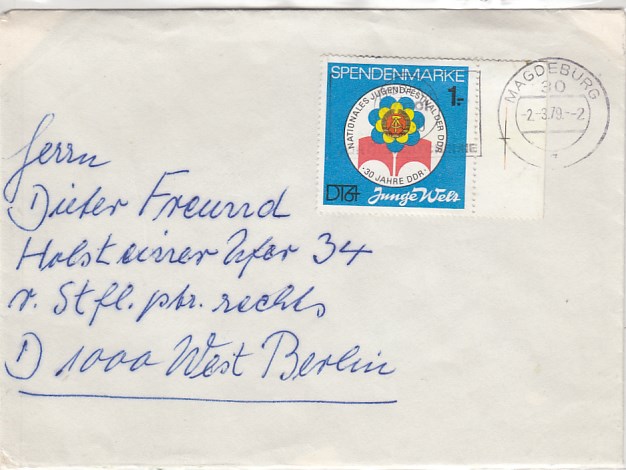 SPENDENMARKE
1.-
NATIONALES JUGENDFESTIVAL DER DDR
· 30 JAHRE DDR ·
Junge Welt
MAGDEBURG
30
-2.-3.79.--2
Herrn
Dieter Freund
Holsteiner Ufer 34
v. Stfl. ptr. rechts
D 1000 West Berlin